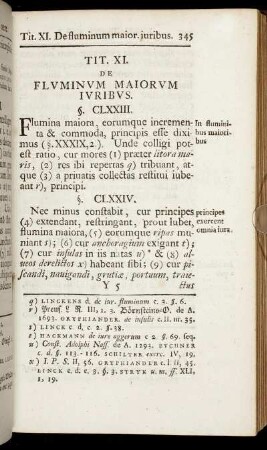 Tit. XI. De fluminum maior. juribus. 345
TIT. XI.
DE
FLVMINVM MAIORVM
IVRIBVS.
§. CLXXIII.
Flumina maiora, eorumque incremen-
ta & commoda, principis esse dixi
mus (§. XXXIX, 2.). Unde colligi pot-
est ratio, cur mores (1) præter litora ma-
ris, (2) res ibi repertas q) tribuant, at-
que (3) a privatis collectas restitui iube-
ant r), principi.
In flumini-
bus maiori-
bus
§. CLXXIV.
Nec minus constabit, cur principes
(4) extendant, restringant, prout lubet,
flumina maiora, (5) eorumque ripas mu-
niant s); (6) cur anchoragium exigant t);
(7) cur insulas in iis natas u) * & (8) al-
veos derelictos x) habeant sibi; (9) cur pi-
scandi, nauigandi, grutiæ, portuum, traie-
principes
exercent
omnia iura.
Y 5 ctus
q) LINCKENS d. de iur. fluminum c. 2. §. 6.
r) Preuß. L R. III, 1. 3. Börnsteins-O. de A.
1693. GRYPHIANDER. de insulis c. 11. nr. 35.
s) LINCK d c. 2. §. 38.
t) HACKMANN de iure aggerum c 2 §. 69. seq.
u) Const. Adolphi Nass. de A. 1293. BYCHNER
c. d. §. 113. - 116. SCHILTER exerc. IV, 19.
x) I. P. S. II, 56. GRYPHIANDER d. l. c 11, 45.
LINCK c d. c. 3. §. 3. STRYK u. m. ff. XLI,
1, 19.